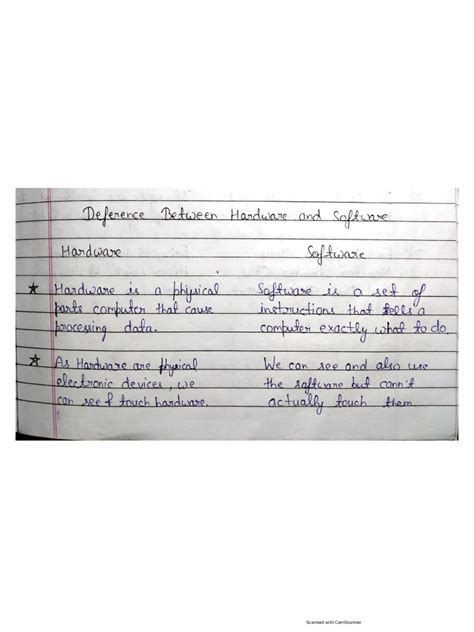 Deference Between Hardware and Software
Hardware Software
Hardware is a physical Software is a set of
parts computer that cause instructions that tells a
processing data. computer exactly what to do.
As Hardware are physical We can see and also use
electronic devices, we the software but cann't
can see & touch hardware. actually touch them
Scanned with CamScanner